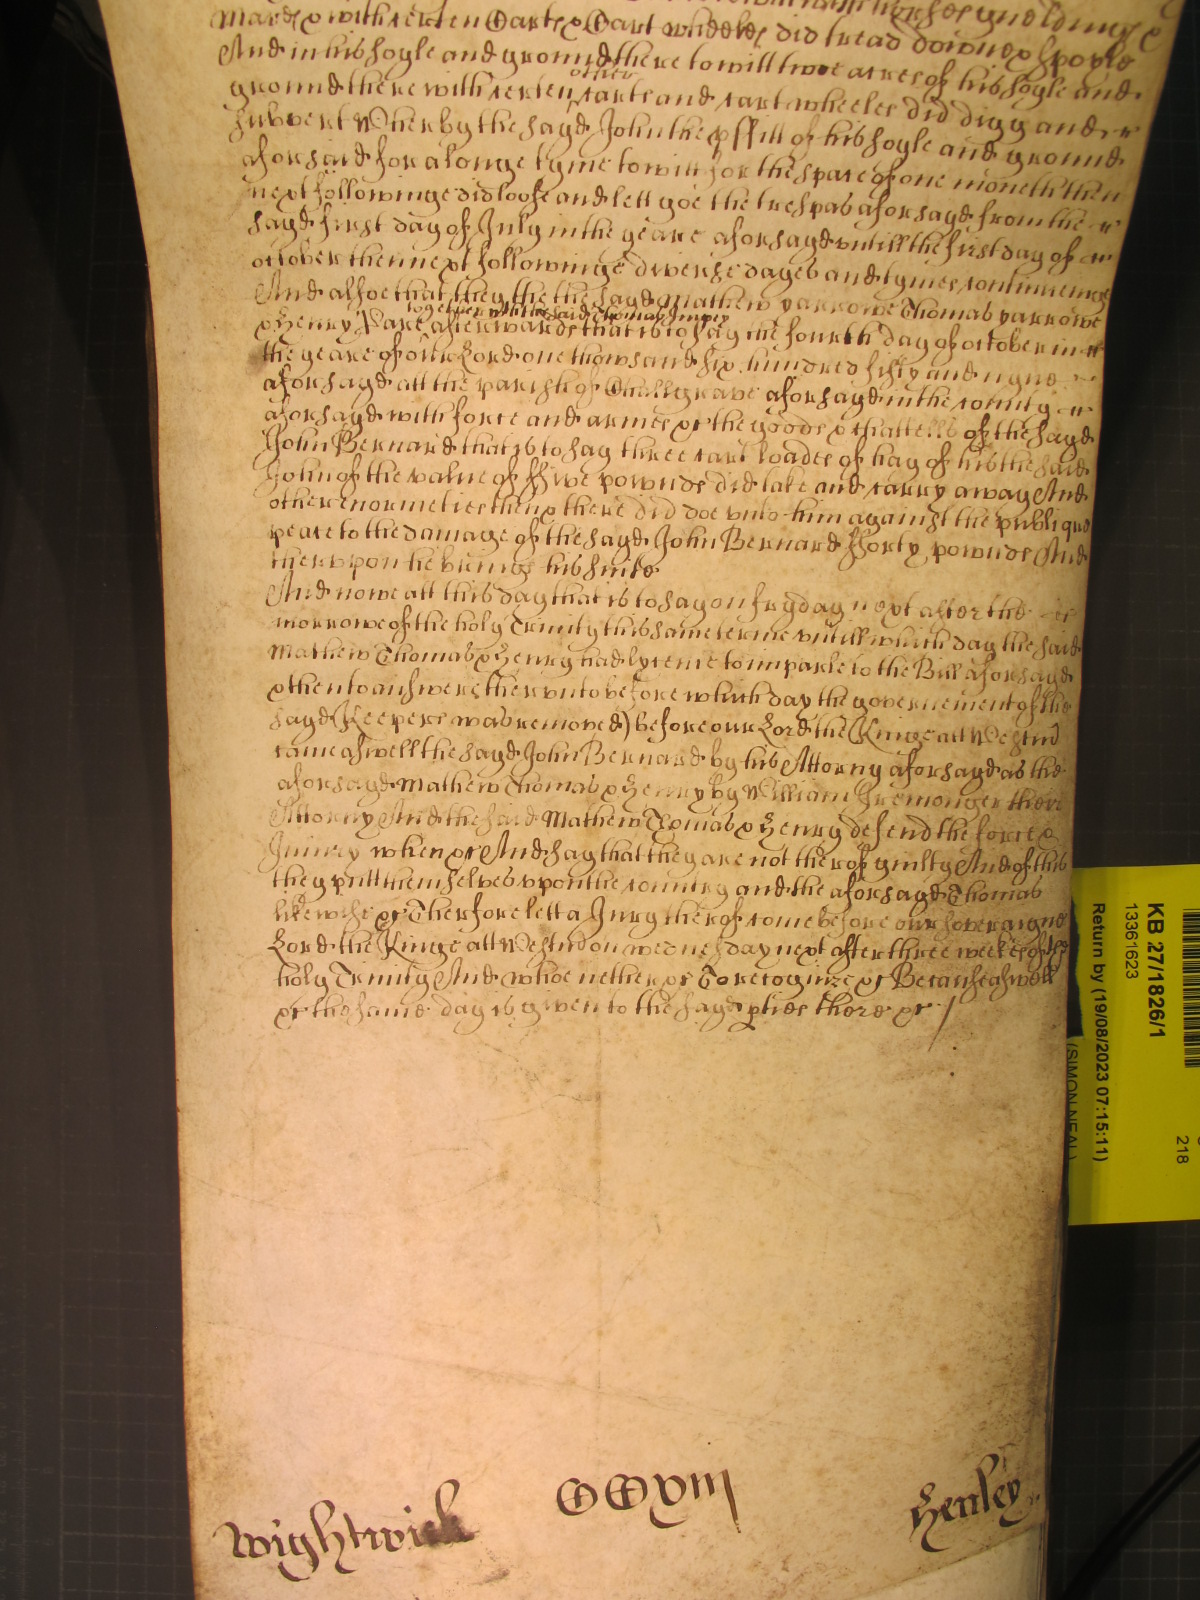 horses gueldings &
Mares & with certen Carts & Cart wheeles did tread downe & spoyle
And in his soyle and ground there to witt twoe acres of his soyle and
ground there with certen other carts and cart wheeles did digg and
subvert Wherby the sayd John the pffitt of his soyle and ground
aforsaid for a longe tyme to witt for the space of one moneth then
next followinge did loose and lett goe the trespas aforsayd from the
sayd first day of July in the yeare aforsayd untill the first day of
october then next followinge diverse dayes and tymes continueinge
And alsoe that they the the sayd Mathew yarrowe Thomas yarrowe
together with the said Thomas Impey
& Henry Pare afterwards that is to say the fourth day of october in
the yeare of our Lord one thowsand six hundred fifty and nyne
aforsayd att the parish of Chalgrave aforsayd in the county
aforsayd with force and armes &c the goods & chattells of the sayd
John Bernard that is to say three cart loades of hay of his the said
John of the value of ffive pownds did take and carry away And
other enormeties then & there did doe unto him against the publique
peace to the damage of the sayd John Bernard fforty pownds And
therupon he brings his suite
And nowe att this day that is to say on fryday next after the
morrowe of the holy Trinity this same terme untill which day the said
Mathew Thomas & Henry had lycence to imparle to the Bill aforsayd
& then to answere therunto before which day the governement of the
sayd (Keepers was removed) before our Lord the Kinge att Westmr
came aswell the sayd John Bernard by his Attorny aforsayd as the
aforsayd Mathew Thomas & Henry by William Iremonger their
Attorny And the said Mathew Thomas & Henry defend the force &
Iniury when &c And say that they are not therof guilty And of this
they putt themselves upon the country and the aforsayd Thomas
likewise &c Therfore lett a Jury therof come before our soveraigne
Lord the Kinge att Westmr on wednesday next after three weekes of the
holy Trinity And whoe nether &c To recognize &c Because aswell
&c the same day is given to the sayd pties there &c
Wightwick
CCxviij
Henley
KB 27/1826/1
13361623
Return by (19/08/2023 07:15:11)
(SIMON NEAL)
218